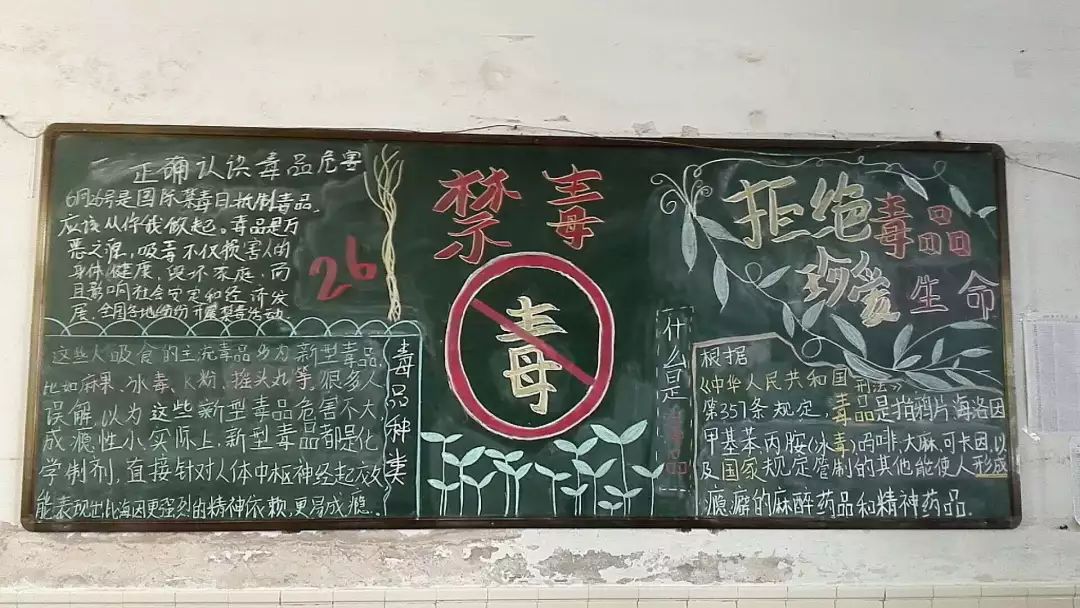 正确认识毒品危害
6月26号是国际禁毒日,抵制毒品,
应该从你我做起。毒品是万
恶之源,吸毒不仅损害人的
身体健康、毁坏家庭、而
且影响社会安定和经济发
展.全国各地纷纷开展禁毒活动.
26
这些人吸食的主流毒品多为新型毒品,
比如麻果、冰毒、K粉、摇头丸等,很多人
误解,以为这些新型毒品危害不大,
成瘾性小,实际上,新型毒品都是化
学制剂,直接针对人体中枢神经起效
能表现出比海因更强烈的精神依赖,更易成瘾.
毒品种类
禁毒
毒
什么是毒品
拒绝毒品
珍爱生命
根据
《中华人民共和国刑法》
第357条规定,毒品是指鸦片,海洛因
甲基苯丙胺(冰毒),吗啡,大麻,可卡因,以
及国家规定管制的其他能使人形成
瘾癖的麻醉药品和精神药品.